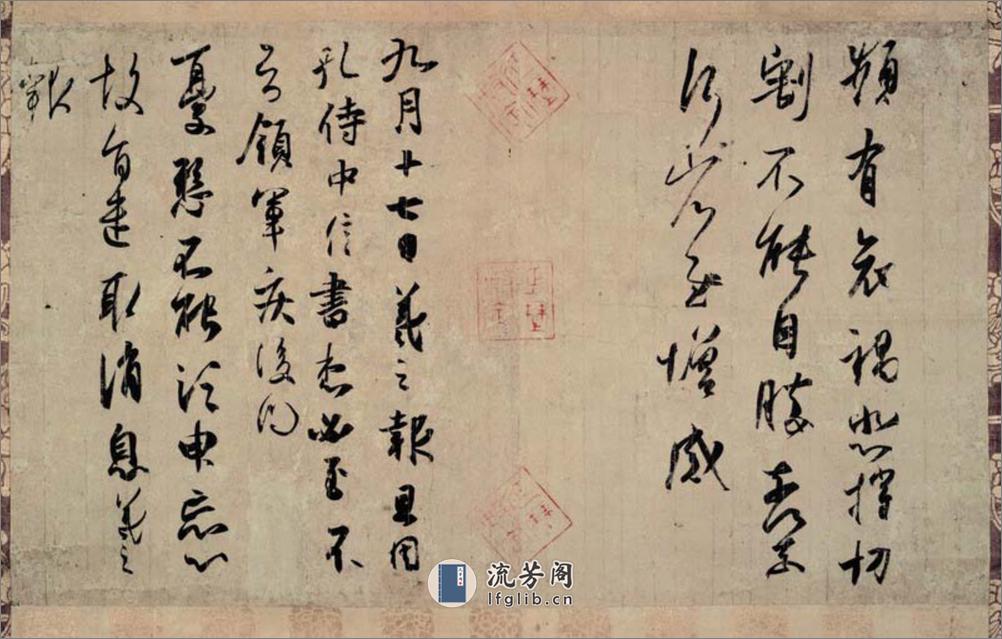 頻有哀禍悲摧切
割不能自勝奈何
奈何省慰增感
九月十七日羲之報且因
孔侍中信書想必至不
知領軍疾後問
憂懸不能須臾忘心
故旨遣取消息羲之
報
流芳阁
lfglib.cn